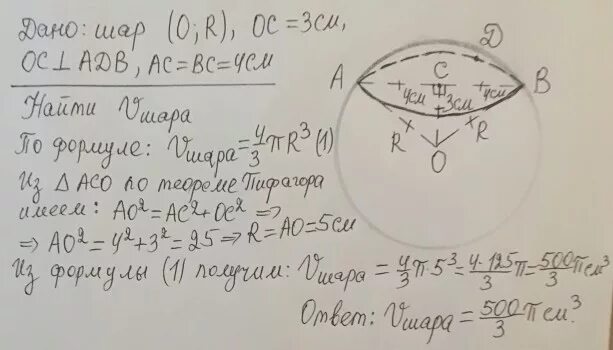 Дано: шар (O; R), OC = 3см,
OC⊥ADB, AC=BC=4см
Найти Vшара
По формуле: Vшара = 4/3 πR³ (1)
Из △ACO по теореме Пифагора
имеем: AO² = AC² + OC² ⇒
⇒ AO² = 4² + 3² = 25 ⇒ R = AO = 5см
Из формулы (1) получим: Vшара = 4/3 π·5³ = 4·125/3 π = 500/3 π см³
Ответ: Vшара = 500/3 π см³.
D
A
C
B
4см
3см
4см
R
R
O